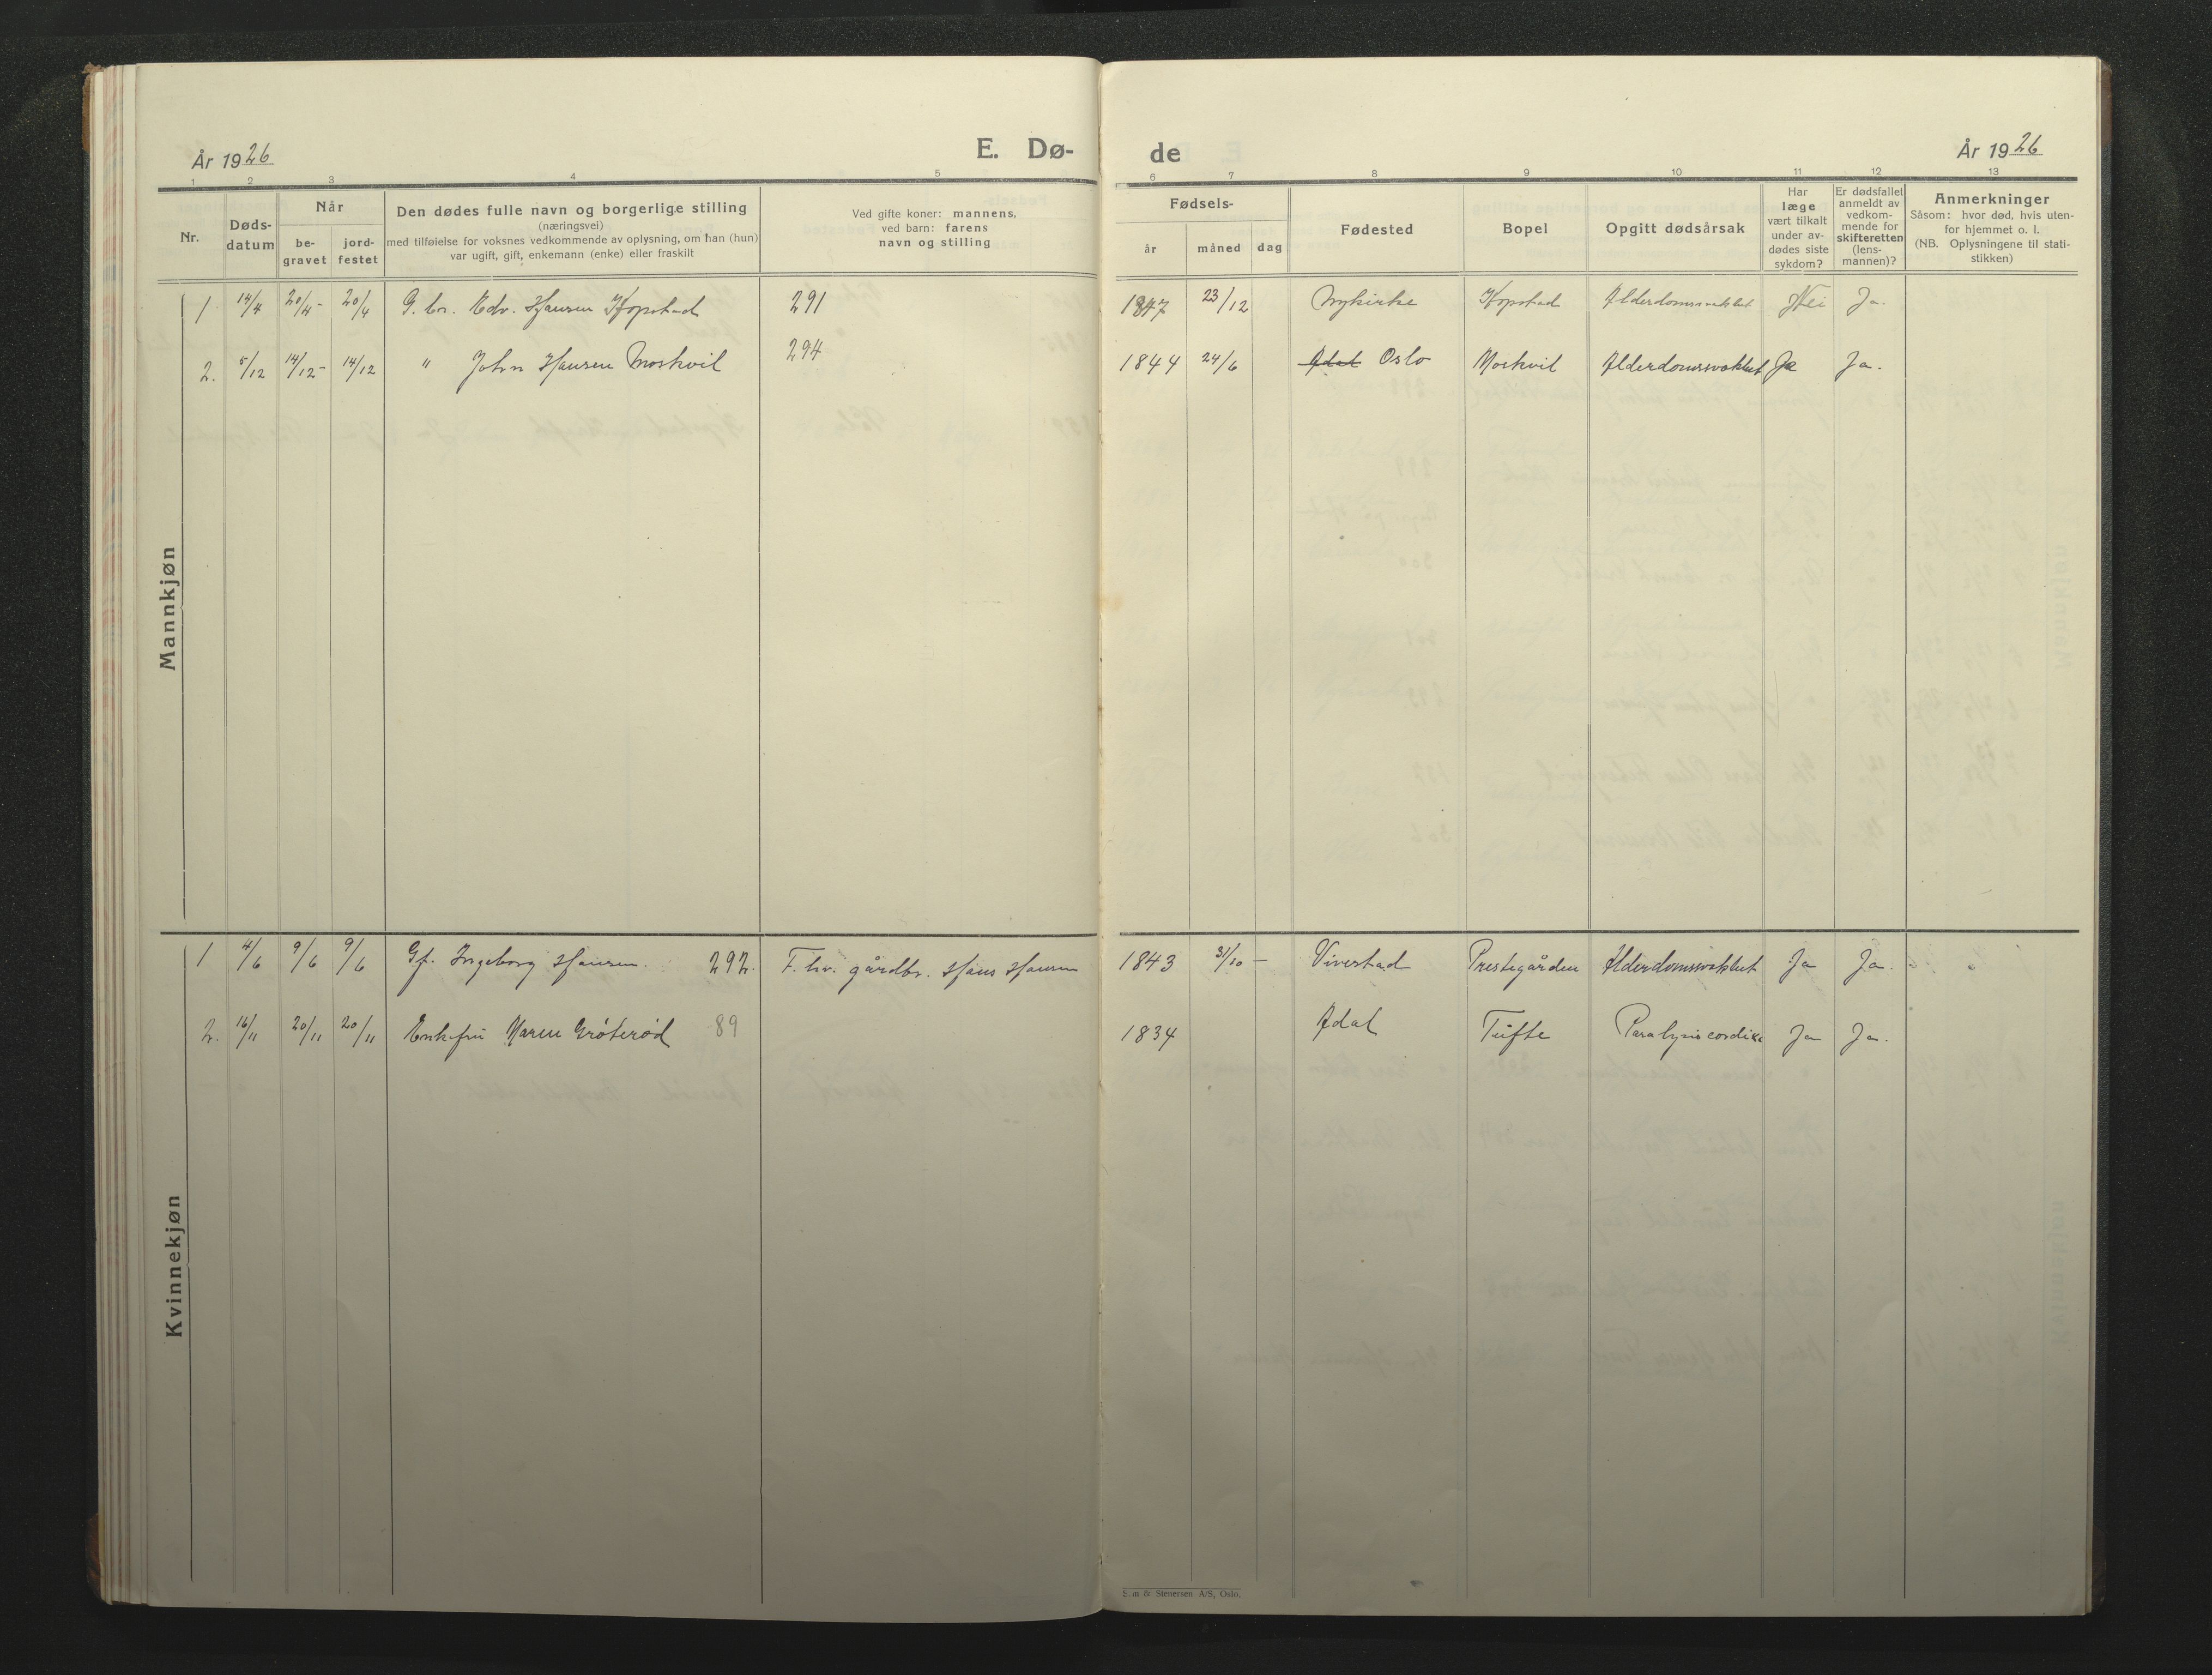 År 1926
E. Dø-
1 2 3 4 5
Nr.
Døds-
datum
Når
be-
gravet
jord-
festet
Den dødes fulle navn og borgerlige stilling
(næringsvei)
med tilføielse for voksnes vedkommende av oplysning, om han (hun)
var ugift, gift, enkemann (enke) eller fraskilt
Ved gifte koner: mannens,
ved barn: farens
navn og stilling
Mannkjøn
1 14/4 20/4- 20/4 G. br. Edv. Hansen Kopstad 291
2. 5/12 14/12- 14/12 " John Hansen Moskvil 294
Kvinnekjøn
1 4/6 9/6 9/6 Gf. Ingeborg Hansen. 292. F. hv. gårdbr. Hans Hansen
2. 16/11 20/11 20/11 Enkefru Maren Grøterød 89
de
År 1926
6 7 8 9 10 11 12 13
Fødsels-
år
måned
dag
Fødested
Bopel
Opgitt dødsårsak
Har
læge
vært tilkalt
under av-
dødes siste
sykdom?
Er dødsfallet
anmeldt av
vedkom-
mende for
skifteretten
(lens-
mannen)?
Anmerkninger
Såsom: hvor død, hvis uten-
for hjemmet o. l.
(NB. Oplysningene til stati-
stikken)
1847 23/12 Nykirke Kopstad Alderdomssvakhet Nei Ja.
1844 24/6 Adal Oslo Moskvil Alderdomssvakhet Ja Ja.
1843 31/10 - Viverstad Prestegården Alderdomssvakhet Ja Ja.
1834 Adal Tufte Paralysis cordis Ja Ja.
& Stenersen A/S, Oslo.